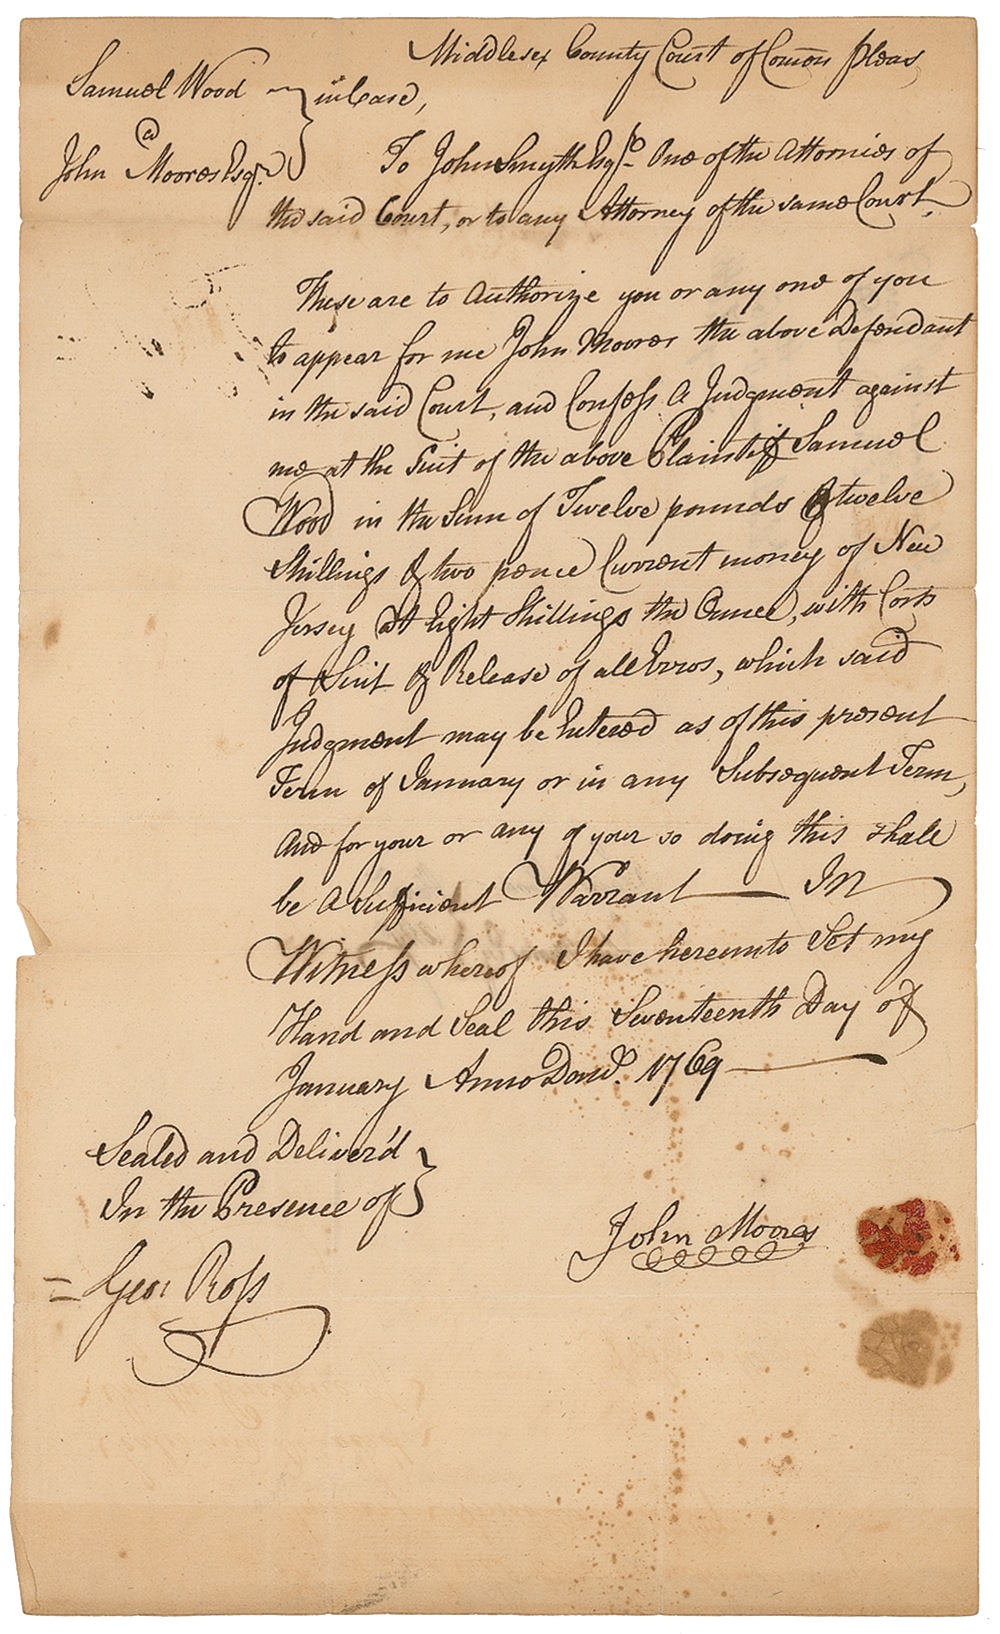 Middlesex County Court of Comon pleas
Samuel Wood
in Case,
a
John Moores Esqr.
To John Smyth Esqr. One of the Attornies of
the said Court, or to any Attorney of the same Court,
These are to Authorize you or any one of you
to appear for me John Moores the above Defendant
in the said Court, and Confess A Judgment against
me at the Suit of the above Plaintiff Samuel
Wood in the Sum of Twelve pounds & twelve
Shillings & two pence Current money of New
Jersey At Eight Shillings the Ounce, with Costs
of Suit & Release of all Errors, which said
Judgment may be Entered as of this present
Term of January or in any Subsequent Term,
And for your or any of your so doing this shall
be A Sufficient Warrant — In
Witness whereof I have hereunto Set my
Hand and Seal this Seventeenth Day of
January Anno Domi. 1769 —
Sealed and Deliver'd
In the Presence of
John Moores
Geo: Ross